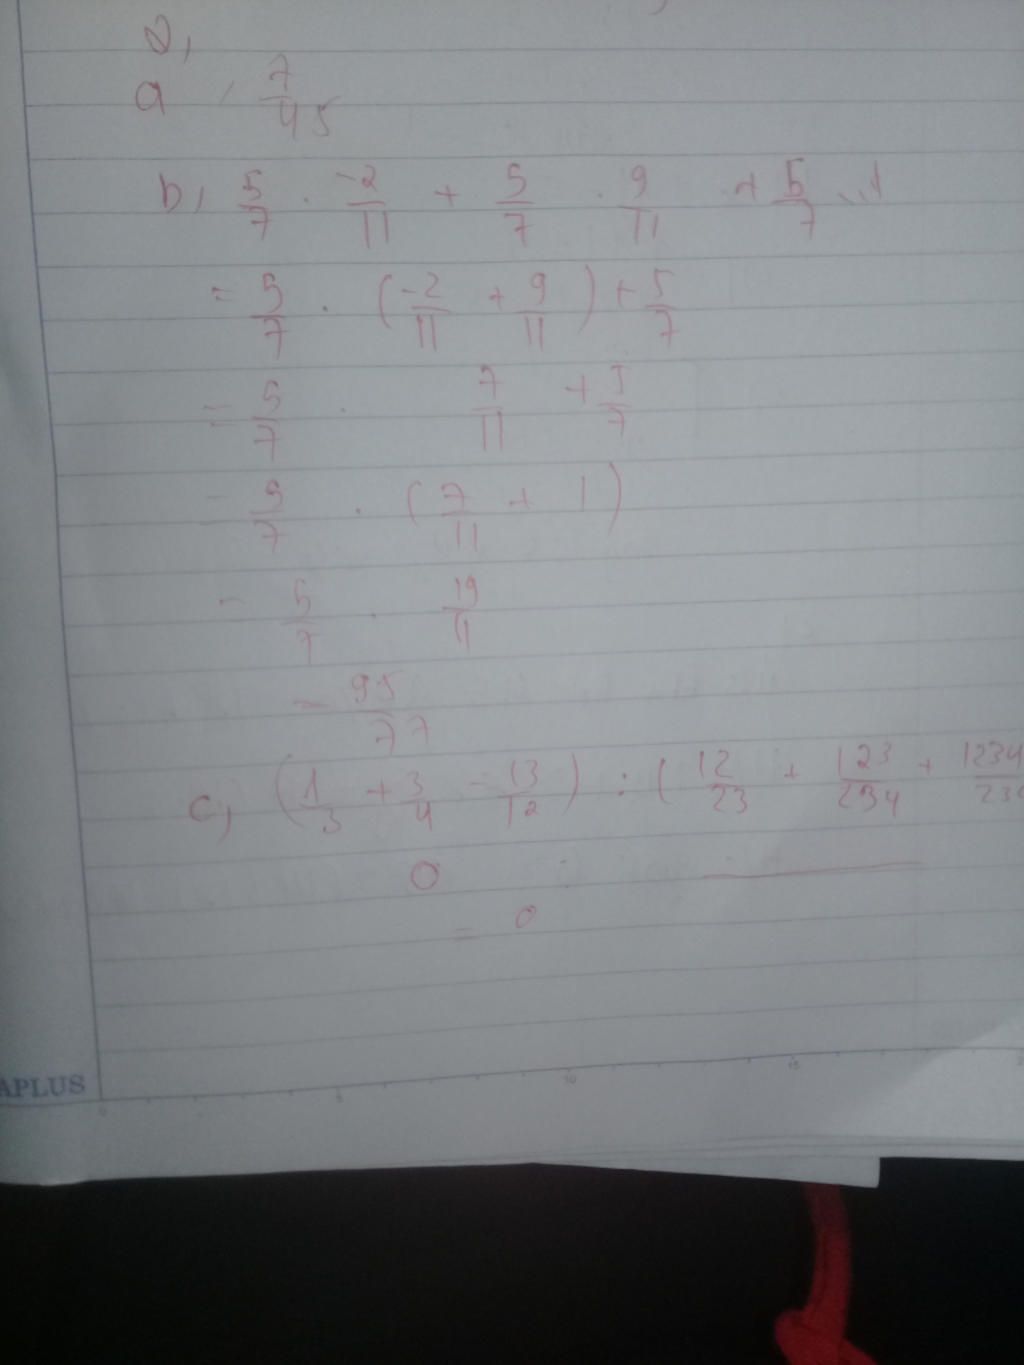 2,
a, 7/45
b, 5/7 . -2/11 + 5/7 . 9/11 + 5/7
= 5/7 . (-2/11 + 9/11) + 5/7
= 5/7 . 7/11 + 5/7
= 5/7 . (7/11 + 1)
= 5/7 . 19/11
= 95/77
c, (1/3 + 3/4 - 13/12) : (12/23 + 123/234 + 1234/
0 :
= 0
APLUS
0 5 10 15